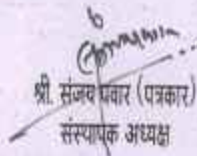 श्री. संजय पवार (पत्रकार)
संस्थापक अध्यक्ष